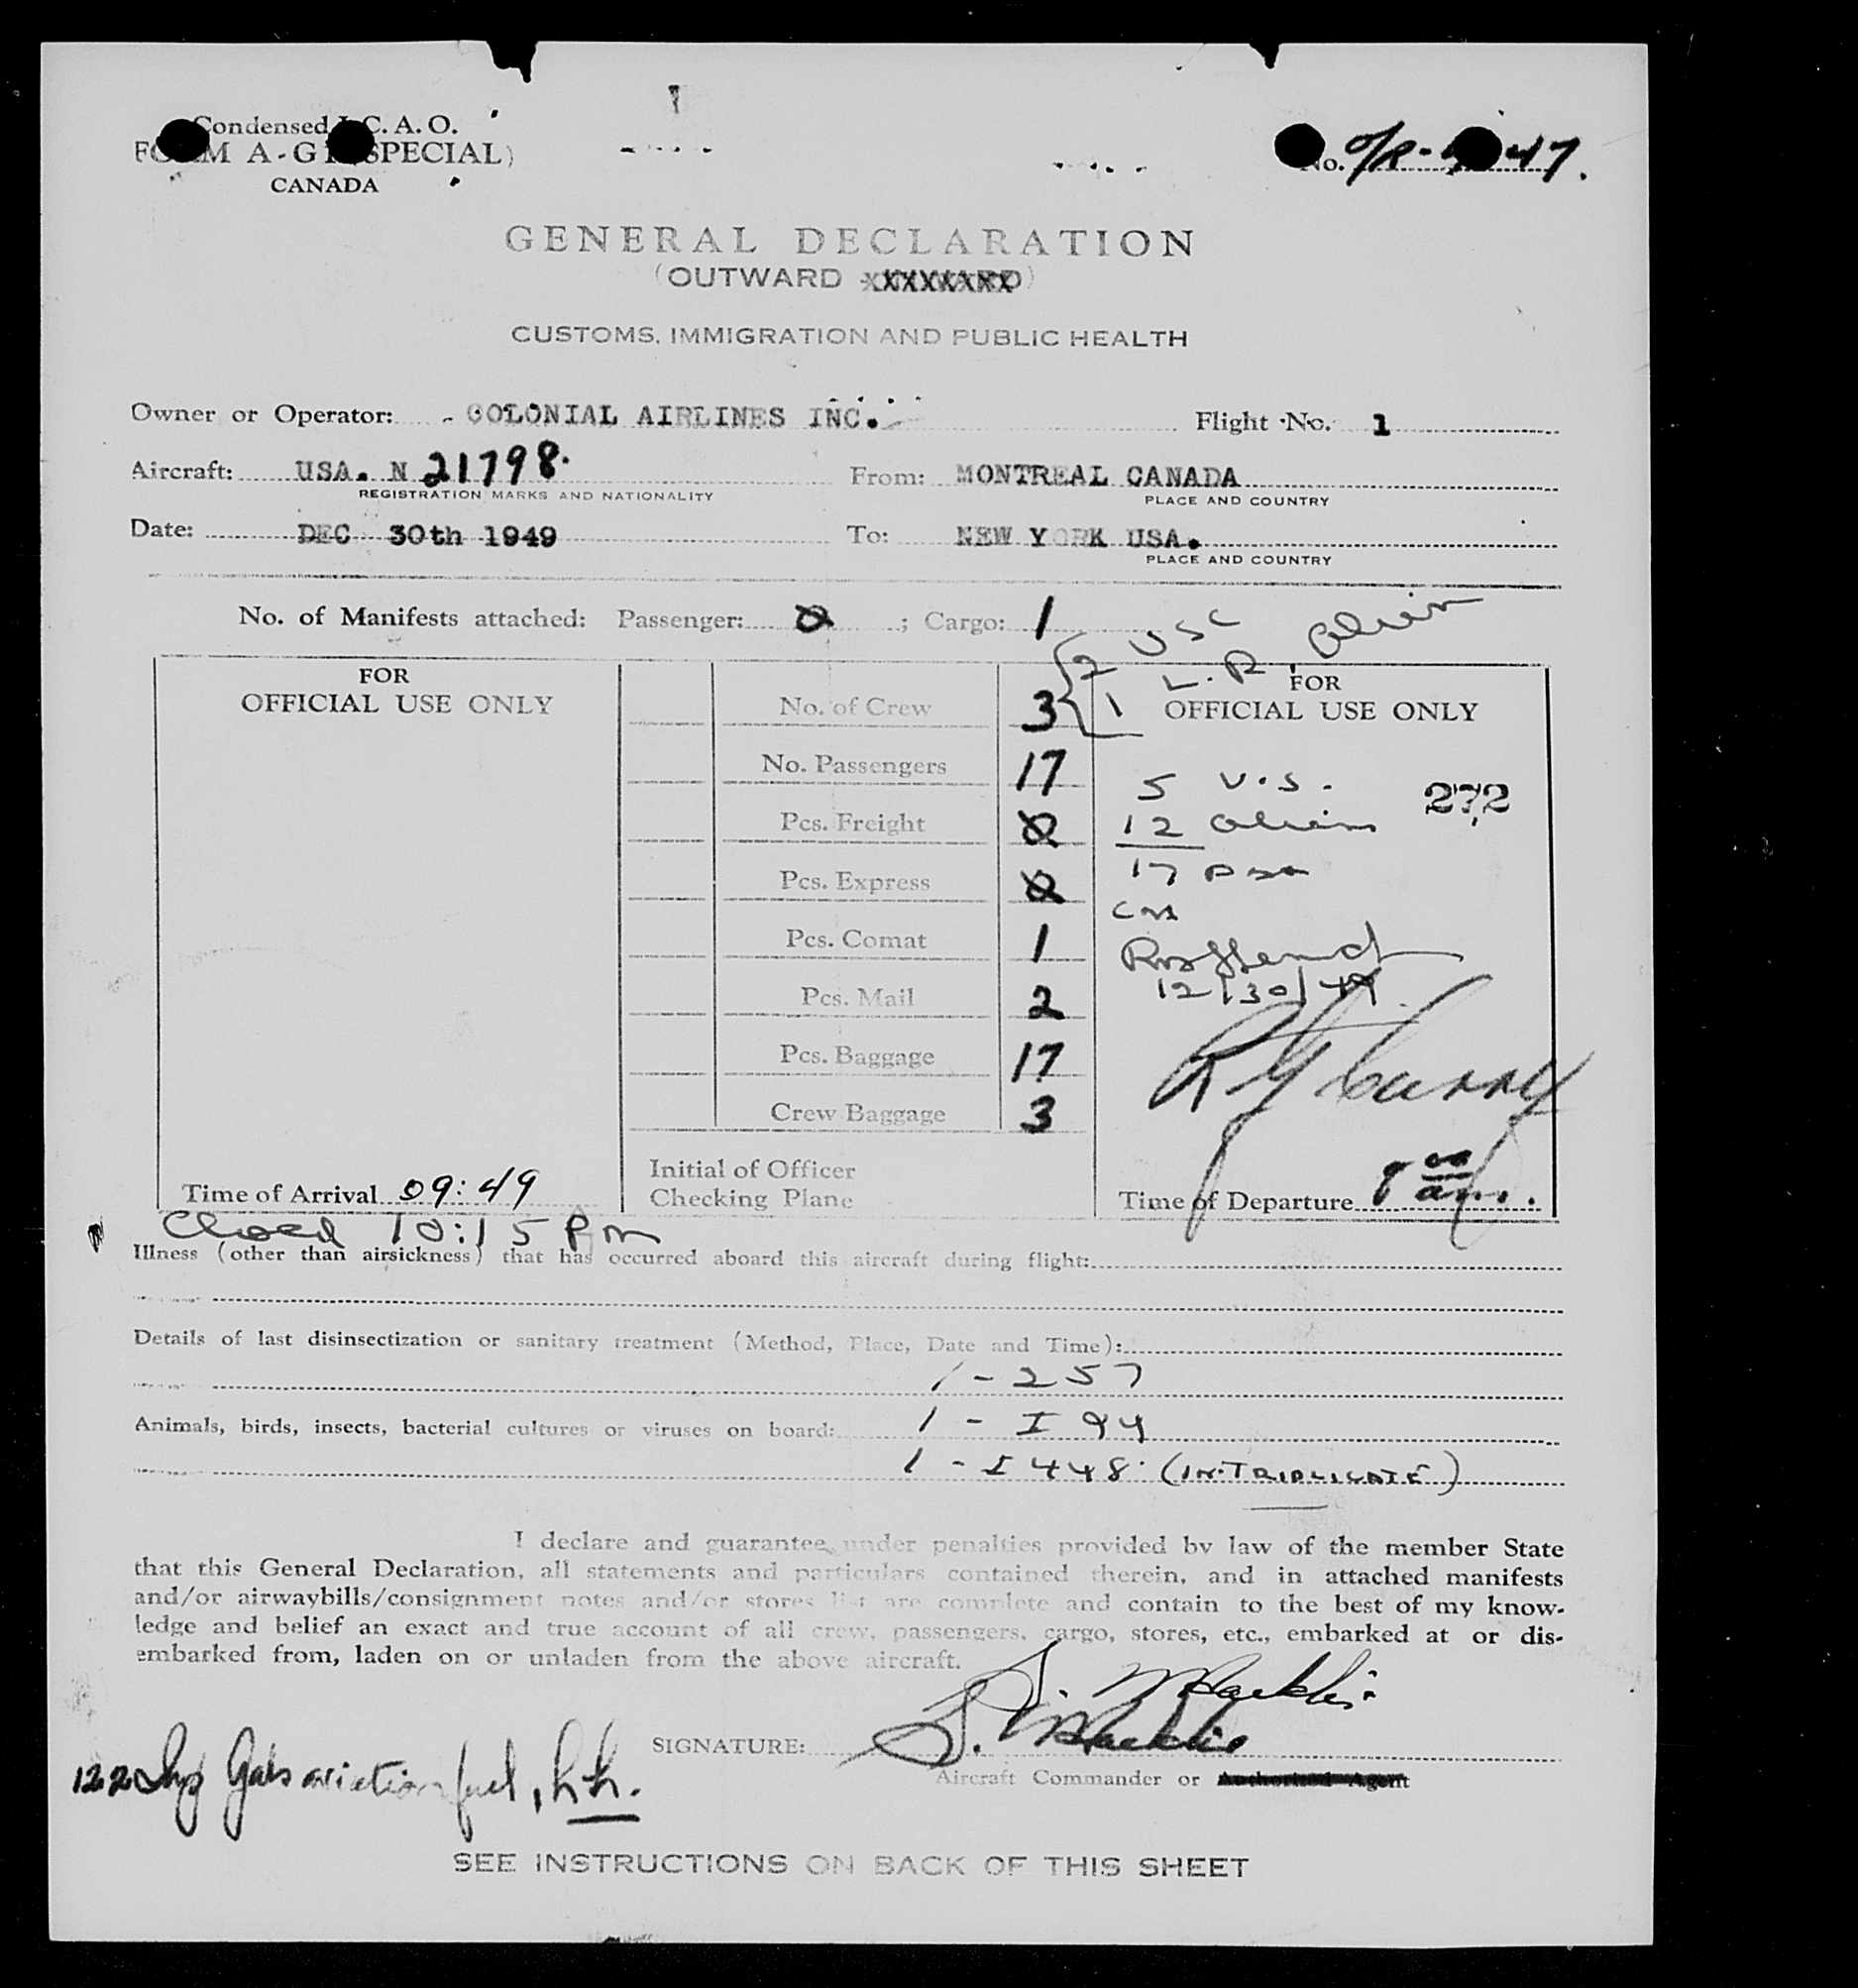 Condensed I. C. A. O.
FORM A-G 1 (SPECIAL)
CANADA
No. O/R- 47.
GENERAL DECLARATION
(OUTWARD
CUSTOMS, IMMIGRATION AND PUBLIC HEALTH
Owner or Operator: COLONIAL AIRLINES INC. Flight No. 1
Aircraft: USA. N 21798. From: MONTREAL CANADA
REGISTRATION MARKS AND NATIONALITY PLACE AND COUNTRY
Date: DEC 30th 1949 To: NEW YORK USA.
PLACE AND COUNTRY
No. of Manifests attached: Passenger: 0 ; Cargo: 1
2 USC
1 L.R alien
FOR
OFFICIAL USE ONLY
No. of Crew 3
No. Passengers 17
Pcs. Freight 0
Pcs. Express 0
Pcs. Comat 1
Pcs. Mail 2
Pcs. Baggage 17
Crew Baggage 3
Initial of Officer
Checking Plane
FOR
OFFICIAL USE ONLY
5 U.S.
272
12 aliens
17
12/30/49
Time of Arrival 09:49
Time of Departure 8 00 am.
Closed 10:15 Pm
Illness (other than airsickness) that has occurred aboard this aircraft during flight:
Details of last disinsectization or sanitary treatment (Method, Place, Date and Time):
1 - 257
Animals, birds, insects, bacterial cultures or viruses on board: 1 - I 94
1 - I 448 (IN TRIPLICATE)
I declare and guarantee under penalties provided by law of the member State
that this General Declaration, all statements and particulars contained therein, and in attached manifests
and/or airwaybills/consignment notes and/or stores list are complete and contain to the best of my know-
ledge and belief an exact and true account of all crew, passengers, cargo, stores, etc., embarked at or dis-
embarked from, laden on or unladen from the above aircraft.
S. Macklin
SIGNATURE: S. Macklin
Aircraft Commander or Authorized Agent
122 Imp Gals aviation fuel, h.h.
SEE INSTRUCTIONS ON BACK OF THIS SHEET